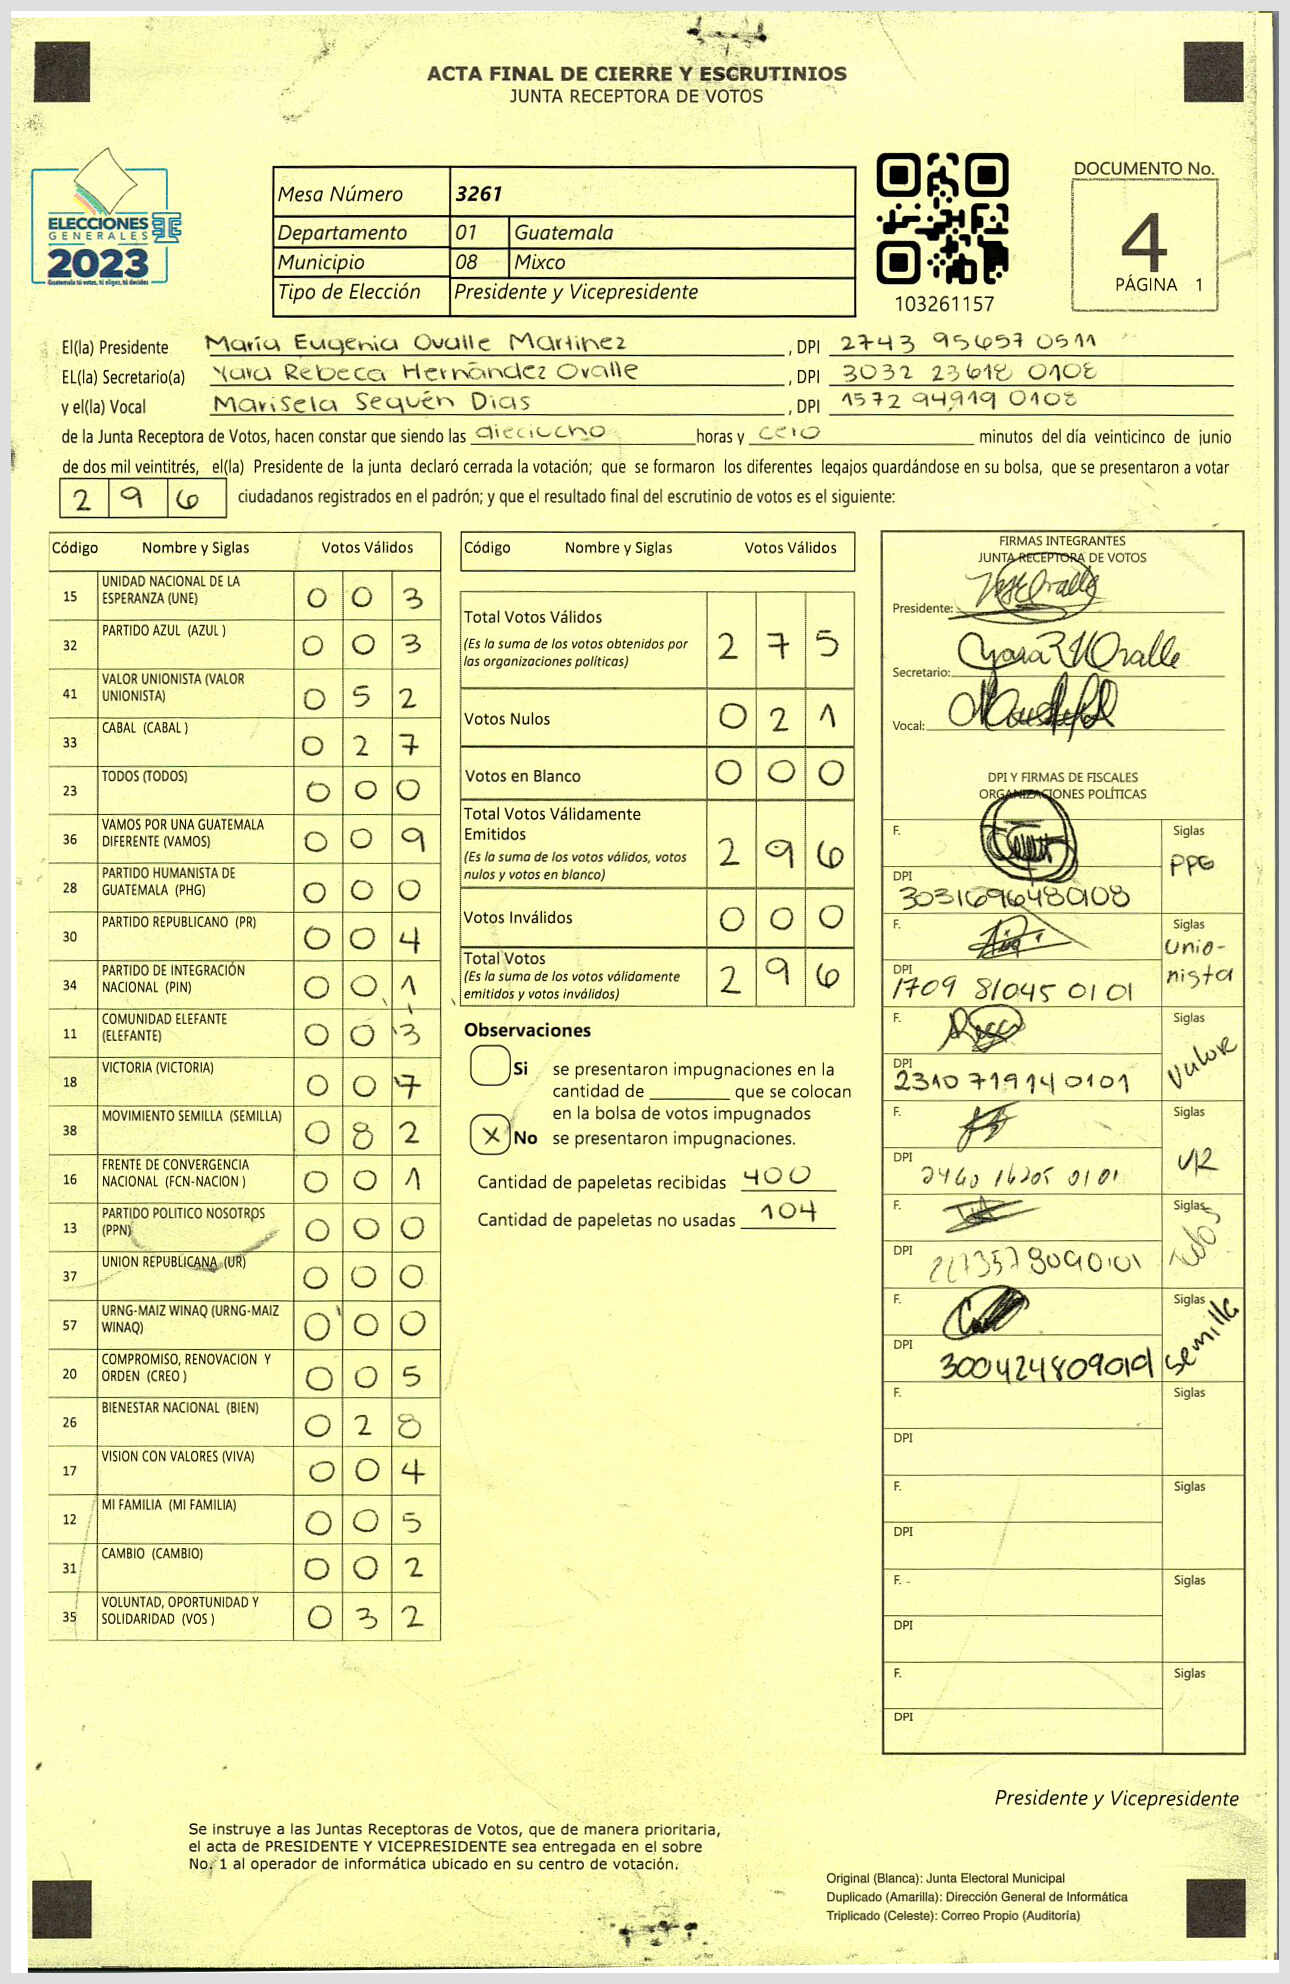 ACTA FINAL DE CIERRE Y ESCRUTINIOS
JUNTA RECEPTORA DE VOTOS
ELECCIONES
GENERALES
2023
Guatemala tú votas, tú eliges, tú decides
Mesa Número 3261
Departamento 01 Guatemala
Municipio 08 Mixco
Tipo de Elección Presidente y Vicepresidente
103261157
DOCUMENTO No.
4
PÁGINA 1
El(la) Presidente María Eugenia Ovalle Martinez , DPI 2743 95657 0511
EL(la) Secretario(a) Yara Rebeca Hernández Ovalle , DPI 3032 23618 0108
y el(la) Vocal Marisela Sequén Dias , DPI 1572 94919 0108
de la Junta Receptora de Votos, hacen constar que siendo las dieciocho horas y cero minutos del día veinticinco de junio
de dos mil veintitrés, el(la) Presidente de la junta declaró cerrada la votación; que se formaron los diferentes legajos guardándose en su bolsa, que se presentaron a votar
2 9 6 ciudadanos registrados en el padrón; y que el resultado final del escrutinio de votos es el siguiente:
Código Nombre y Siglas Votos Válidos
15 UNIDAD NACIONAL DE LA ESPERANZA (UNE) 0 0 3
32 PARTIDO AZUL (AZUL ) 0 0 3
41 VALOR UNIONISTA (VALOR UNIONISTA) 0 5 2
33 CABAL (CABAL ) 0 2 7
23 TODOS (TODOS) 0 0 0
36 VAMOS POR UNA GUATEMALA DIFERENTE (VAMOS) 0 0 9
28 PARTIDO HUMANISTA DE GUATEMALA (PHG) 0 0 0
30 PARTIDO REPUBLICANO (PR) 0 0 4
34 PARTIDO DE INTEGRACIÓN NACIONAL (PIN) 0 0 1
11 COMUNIDAD ELEFANTE (ELEFANTE) 0 0 3
18 VICTORIA (VICTORIA) 0 0 7
38 MOVIMIENTO SEMILLA (SEMILLA) 0 8 2
16 FRENTE DE CONVERGENCIA NACIONAL (FCN-NACION ) 0 0 1
13 PARTIDO POLITICO NOSOTROS (PPN) 0 0 0
37 UNION REPUBLICANA (UR) 0 0 0
57 URNG-MAIZ WINAQ (URNG-MAIZ WINAQ) 0 0 0
20 COMPROMISO, RENOVACION Y ORDEN (CREO ) 0 0 5
26 BIENESTAR NACIONAL (BIEN) 0 2 8
17 VISION CON VALORES (VIVA) 0 0 4
12 MI FAMILIA (MI FAMILIA) 0 0 5
31 CAMBIO (CAMBIO) 0 0 2
35 VOLUNTAD, OPORTUNIDAD Y SOLIDARIDAD (VOS ) 0 3 2
Código Nombre y Siglas Votos Válidos
Total Votos Válidos 2 7 5
(Es la suma de los votos obtenidos por
las organizaciones políticas)
Votos Nulos 0 2 1
Votos en Blanco 0 0 0
Total Votos Válidamente
Emitidos 2 9 6
(Es la suma de los votos válidos, votos
nulos y votos en blanco)
Votos Inválidos 0 0 0
Total Votos 2 9 6
(Es la suma de los votos válidamente
emitidos y votos inválidos)
Observaciones
Si se presentaron impugnaciones en la
cantidad de ________ que se colocan
en la bolsa de votos impugnados
X No se presentaron impugnaciones.
Cantidad de papeletas recibidas 400
Cantidad de papeletas no usadas 104
FIRMAS INTEGRANTES
JUNTA RECEPTORA DE VOTOS
Presidente:
Secretario:
Vocal:
DPI Y FIRMAS DE FISCALES
ORGANIZACIONES POLÍTICAS
F. Siglas PPG
DPI 3031696480108
F. Siglas Unio-
nista
DPI 1709 81045 0101
F. Siglas Valor
DPI 2310719140101
F. Siglas UR
DPI 2460 16205 0101
F. Siglas Todos
DPI
F. Siglas Semilla
DPI
F. Siglas
DPI
F. Siglas
DPI
F. Siglas
DPI
F. Siglas
DPI
Presidente y Vicepresidente
Se instruye a las Juntas Receptoras de Votos, que de manera prioritaria,
el acta de PRESIDENTE Y VICEPRESIDENTE sea entregada en el sobre
No. 1 al operador de informática ubicado en su centro de votación.
Original (Blanca): Junta Electoral Municipal
Duplicado (Amarilla): Dirección General de Informática
Triplicado (Celeste): Correo Propio (Auditoría)